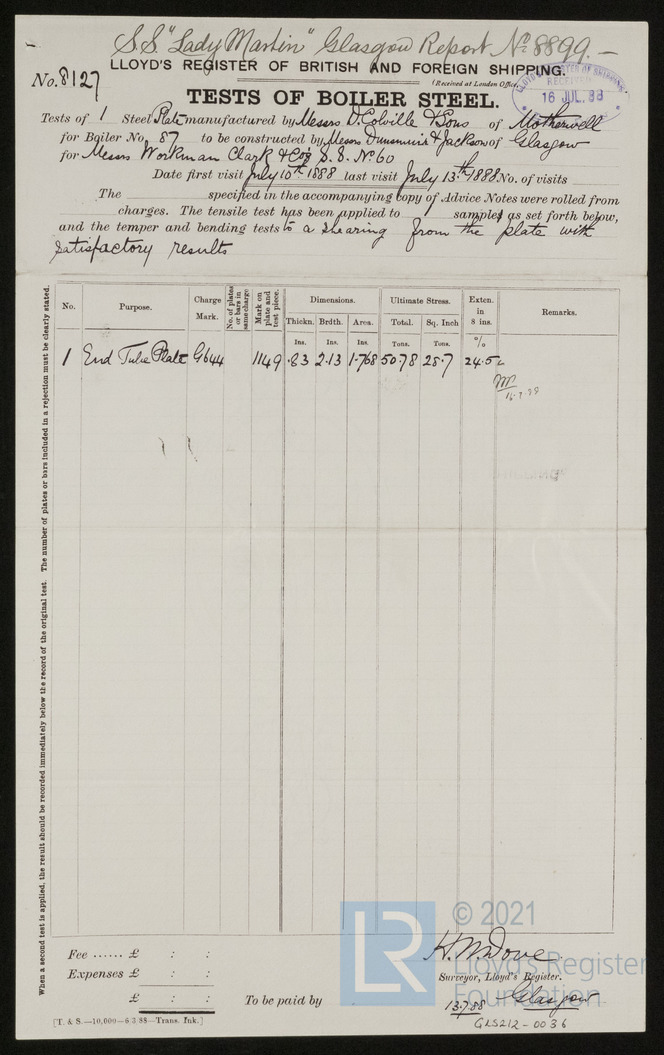 S.S. "Lady Martin" Glasgow Report No. 8899.—
LLOYD'S REGISTER OF BRITISH AND FOREIGN SHIPPING.
No. 8127
(Received at London Office,
LLOYD'S REGISTER OF SHIPPING
RECEIVED
16 JUL. 88
TESTS OF BOILER STEEL.
Tests of 1 Steel Plate manufactured by Messrs D. Colville & Sons of Motherwell
for Boiler No. 87 to be constructed by Messrs Dunsmuir & Jackson of Glasgow
for Messrs Workman Clark & Co's S.S. No 60
Date first visit July 10th 1888 last visit July 13th 1888 No. of visits
The specified in the accompanying copy of Advice Notes were rolled from
charges. The tensile test has been applied to samples as set forth below,
and the temper and bending tests to a shearing from the plate with
satisfactory results
When a second test is applied, the result should be recorded immediately below the record of the original test. The number of plates or bars included in a rejection must be clearly stated.
No. Purpose. Charge Mark. No. of plates or bars in same charge Mark on plate and test piece. Dimensions. Ultimate Stress. Exten. in 8 ins. Remarks.
Thickn. Brdth. Area. Total. Sq. Inch
Ins. Ins. Ins. Tons. Tons. %
1 End Tube Plate G644 1149 .83 2.13 1.768 50.78 28.7 24.5
16.7.88
© 2021
LR
Lloyd's Register
Foundation
Fee ...... £ : :
Expenses £ : :
£ : : To be paid by
H. M. Dove
Surveyor, Lloyd's Register.
13.7.88 Glasgow
[T. & S.—10,000—6/3/88—Trans. Ink.]
GLS212-0036